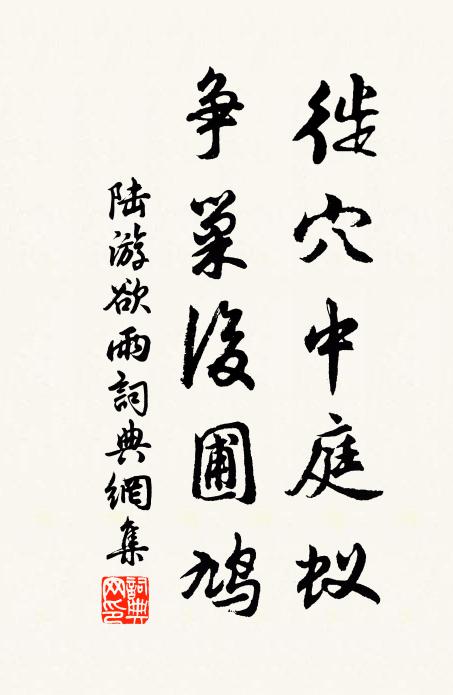 徙穴中庭蚁
争巢後圃鸠
陆游欲雨詞典網集
詞典网印